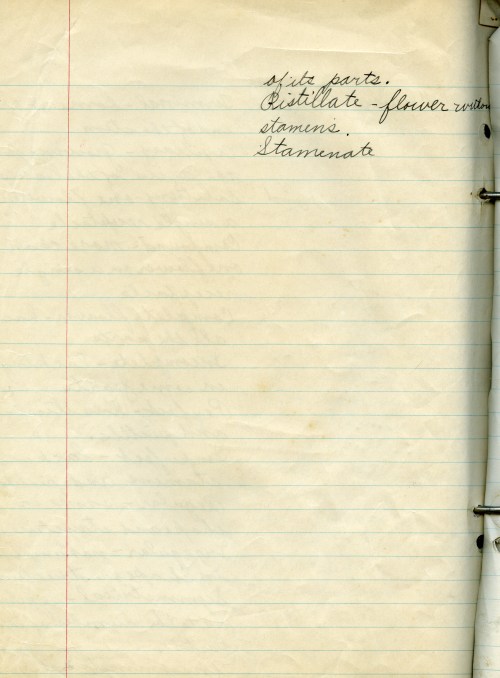 of its parts.
Pistillate - flower withou
stamens.
Stamenate